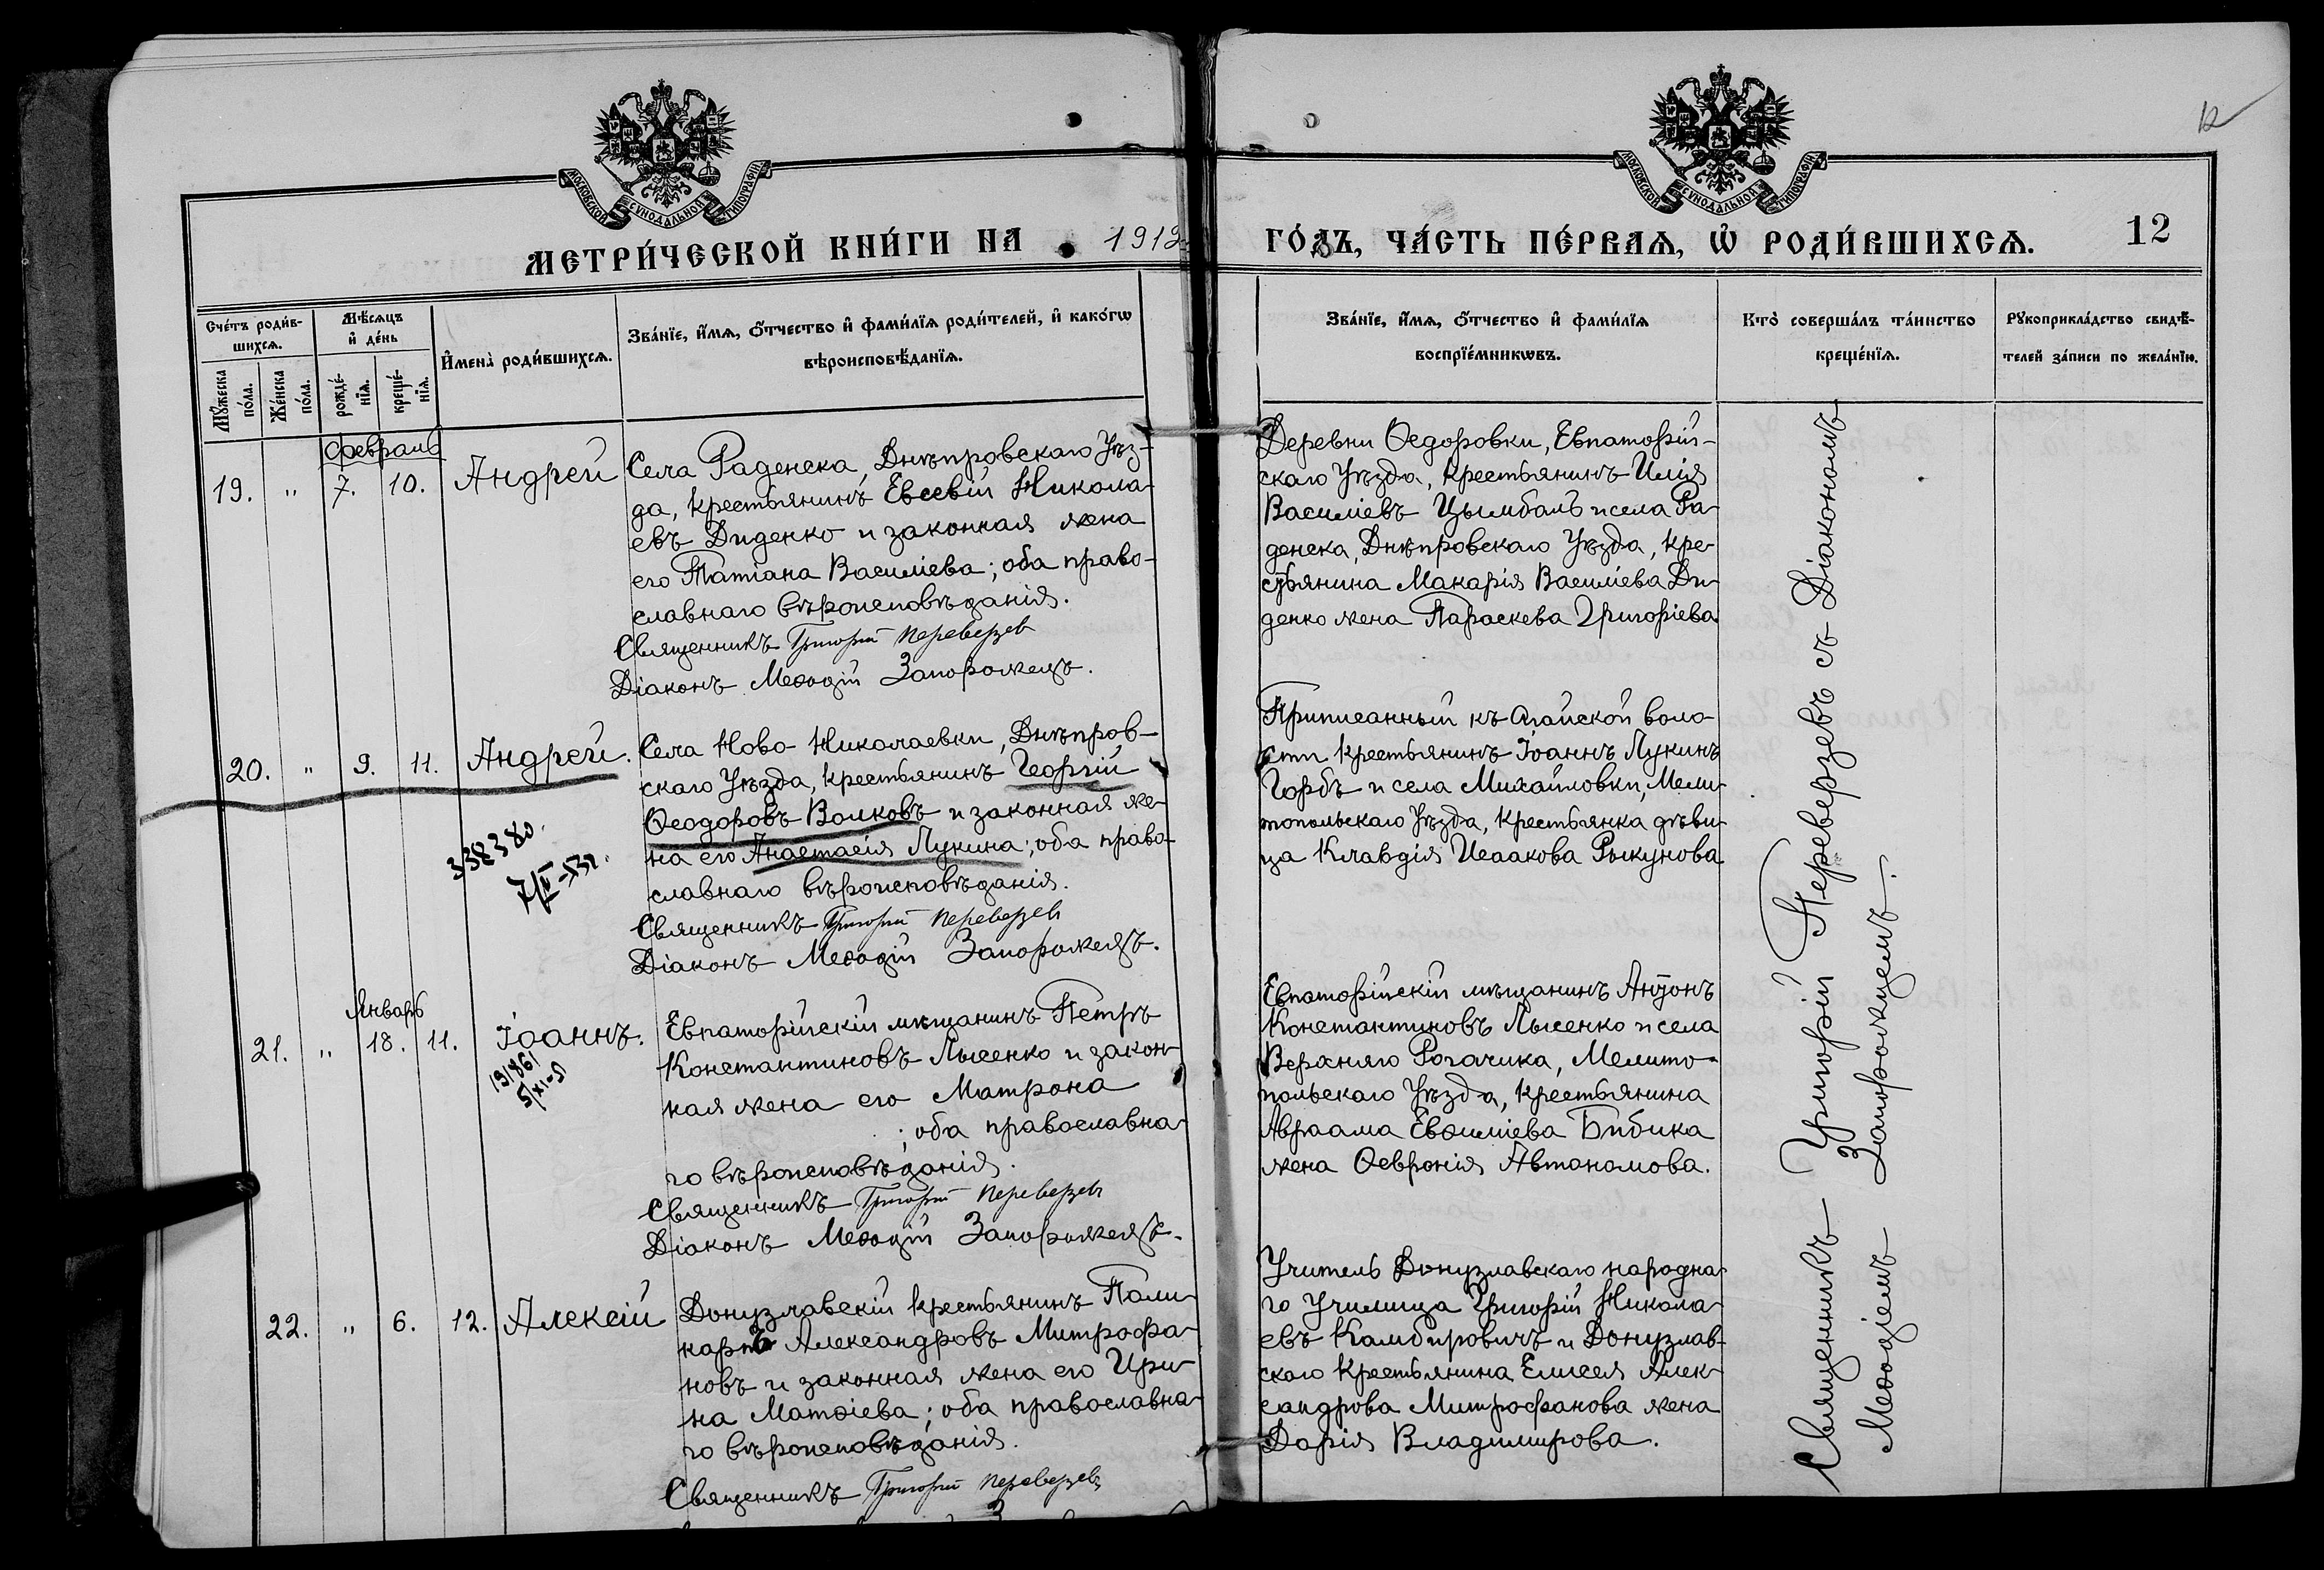 МОСКОВСКОЙ СѴНОДАЛЬНОЙ ТИПОГРАФІИ
МОСКОВСКОЙ СѴНОДАЛЬНОЙ ТИПОГРАФІИ
12
МЕТРИ́ЧЕСКОЙ КНИ́ГИ НА 1912
ГО́ДЪ, ЧА́СТЬ ПЕ́РВАѦ, Ѡ РОДИ́ВШИХСѦ. 12
Сче́тъ роди́в-
шихсѧ.
Мꙋ́жеска
по́ла.
Же́нска
по́ла.
Мѣ́сѧцъ
и҆ де́нь
рожде́-
нїѧ.
креще́-
нїѧ.
И҆мена̀ роди́вшихсѧ.
Зва́нїе, и҆́мѧ, ѻ҆́тчество и҆ фами́лїѧ роди́телей, и҆ како́гѡ
вѣроисповѣ́данїѧ.
Зва́нїе, и҆́мѧ, ѻ҆́тчество и҆ фами́лїѧ
воспрїе́мникѡвъ.
Кто̀ соверша́лъ та́инство
креще́нїѧ.
Рꙋкоприкла́дство свидѣ́-
телей за́писи по жела́нїю.
Февраль
19. " 7. 10. Андрей
Села Раденска, Днѣпровскаго Уѣз-
да, крестьянинъ Евсевій Никола-
евъ Диденко и законная жена
его Татіана Василіева; оба право-
славнаго вѣроисповѣданія.
Священникъ Григорій Переверзев
Діаконъ Меѳодій Запорожецъ.
Деревни Ѳедоровки, Евпаторій-
скаго Уѣзда, крестьянинъ Илія
Василіевъ Цымбалъ и села Ра-
денска, Днѣпровскаго Уѣзда, кре-
стьянина Макарія Василіева Ди-
денко жена Параскева Григоріева
20. " 9. 11. Андрей.
338380.
7/IV-53г.
Села Ново-Николаевки, Днѣпров-
скаго Уѣзда, крестьянинъ Георгій
Ѳеодоровъ Волковъ и законная же-
на его Анастасія Лукина; оба право-
славнаго вѣроисповѣданія.
Священникъ Григорій Переверзев
Діаконъ Меѳодій Запорожецъ.
Приписанный къ Агайской воло-
сти крестьянинъ Іоаннъ Лукинъ
Горбъ и села Михайловки, Мели-
топольскаго Уѣзда, крестьянка дѣви-
ца Клавдія Исаакова Рыкунова
Январь
21. " 18. 11. Іоаннъ.
191861
5/XI-51
Евпаторійскій мѣщанинъ Петръ
Константиновъ Лысенко и закон-
ная жена его Матрона
; оба православна-
го вѣроисповѣданія.
Священникъ Григорій Переверзев
Діаконъ Меѳодій Запорожецъ.
Евпаторійскій мѣщанинъ Антонъ
Константиновъ Лысенко и села
Верхняго Рогачика, Мелито-
польскаго Уѣзда, крестьянина
Авраама Евѳиміева Бибика
жена Ѳевронія Автономова.
22. " 6. 12. Алексій
Донузлавскій крестьянинъ Поли-
карпъ Александровъ Митрофа-
новъ и законная жена его Ири-
на Матѳіева; оба православна-
го вѣроисповѣданія.
Священникъ Григорій Переверзев
Учитель Донузлавскаго народна-
го Училища Григорій Никола-
евъ Камбировичъ и Донузлав-
скаго крестьянина Елисея Алек-
сандрова Митрофанова жена
Дарія Владимирова.
Священникъ Григорій Переверзевъ съ Діакономъ
Меѳодіемъ Запорожцемъ.